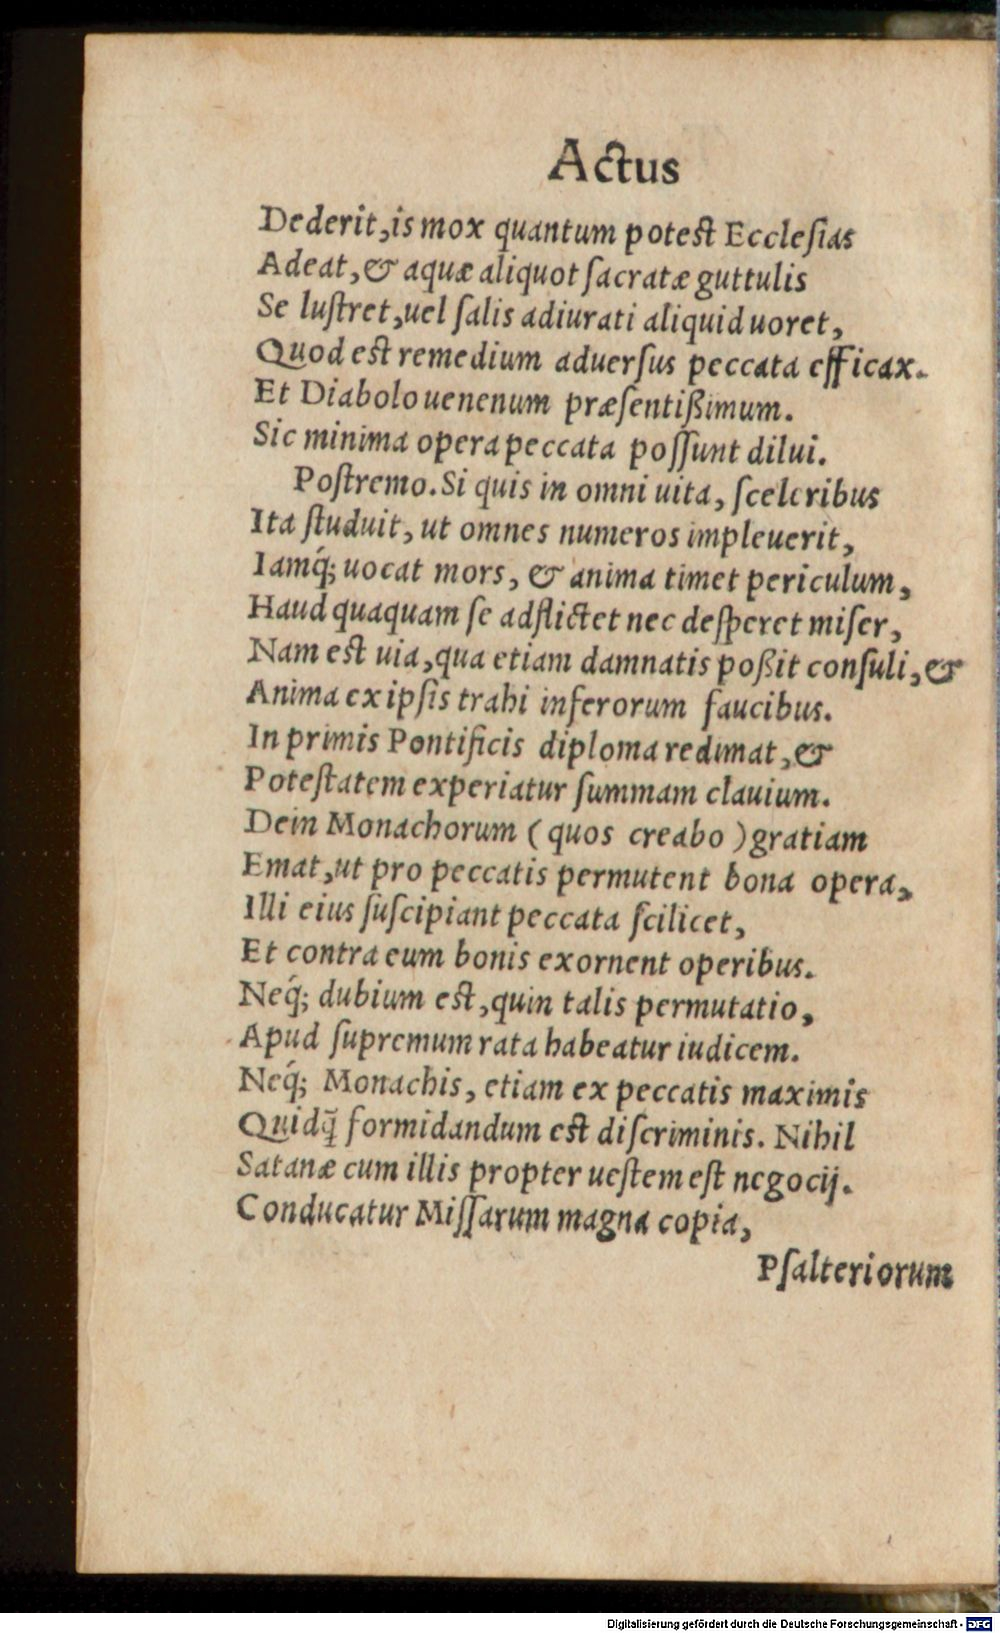 Actus
Dederit, is mox quantum potest Eccleſias
Adeat, & aquæ aliquot ſacratæ guttulis
Se luſtret, uel ſalis adiurati aliquid uoret,
Quod est remedium aduerſus peccata efficax.
Et Diabolo uenenum præſentißimum.
Sic minima opera peccata poſſunt dilui.
Poſtremo. Si quis in omni uita, ſceleribus
Ita ſtuduit, ut omnes numeros impleuerit,
Iamq́; uocat mors, & anima timet periculum,
Haud quaquam ſe adflictet nec deſperet miſer,
Nam est uia, qua etiam damnatis poßit conſuli, &
Anima ex ipſis trahi inferorum faucibus.
In primis Pontificis diploma redimat, &
Poteſtatem experiatur ſummam clauium.
Dein Monachorum ( quos creabo ) gratiam
Emat, ut pro peccatis permutent bona opera,
Illi eius ſuſcipiant peccata ſcilicet,
Et contra eum bonis exornent operibus.
Neq́; dubium est, quin talis permutatio,
Apud ſupremum rata habeatur iudicem.
Neq́; Monachis, etiam ex peccatis maximis
Quidq̃ formidandum est diſcriminis. Nihil
Satanæ cum illis propter ueſtem eſt negocij.
Conducatur Miſſarum magna copia,
Pſalteriorum
Digitalisierung gefördert durch die Deutsche Forschungsgemeinschaft - DFG